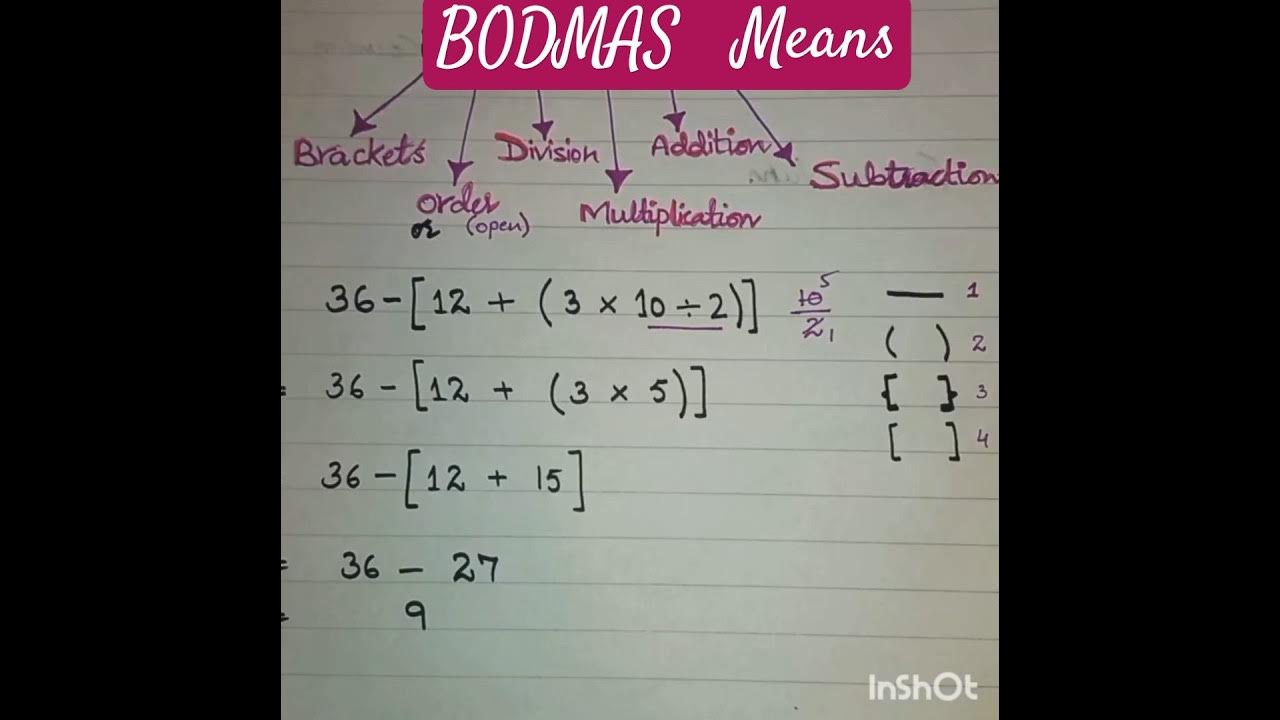 BODMAS Means
Brackets Division Addition Subtraction
order Multiplication
or (open)
36-[12 + (3 × 10 ÷ 2)] 10 5 / 2 1 — 1
( ) 2
= 36 - [12 + (3 × 5)] { } 3
[ ] 4
36 - [12 + 15]
= 36 - 27
= 9
InShOt